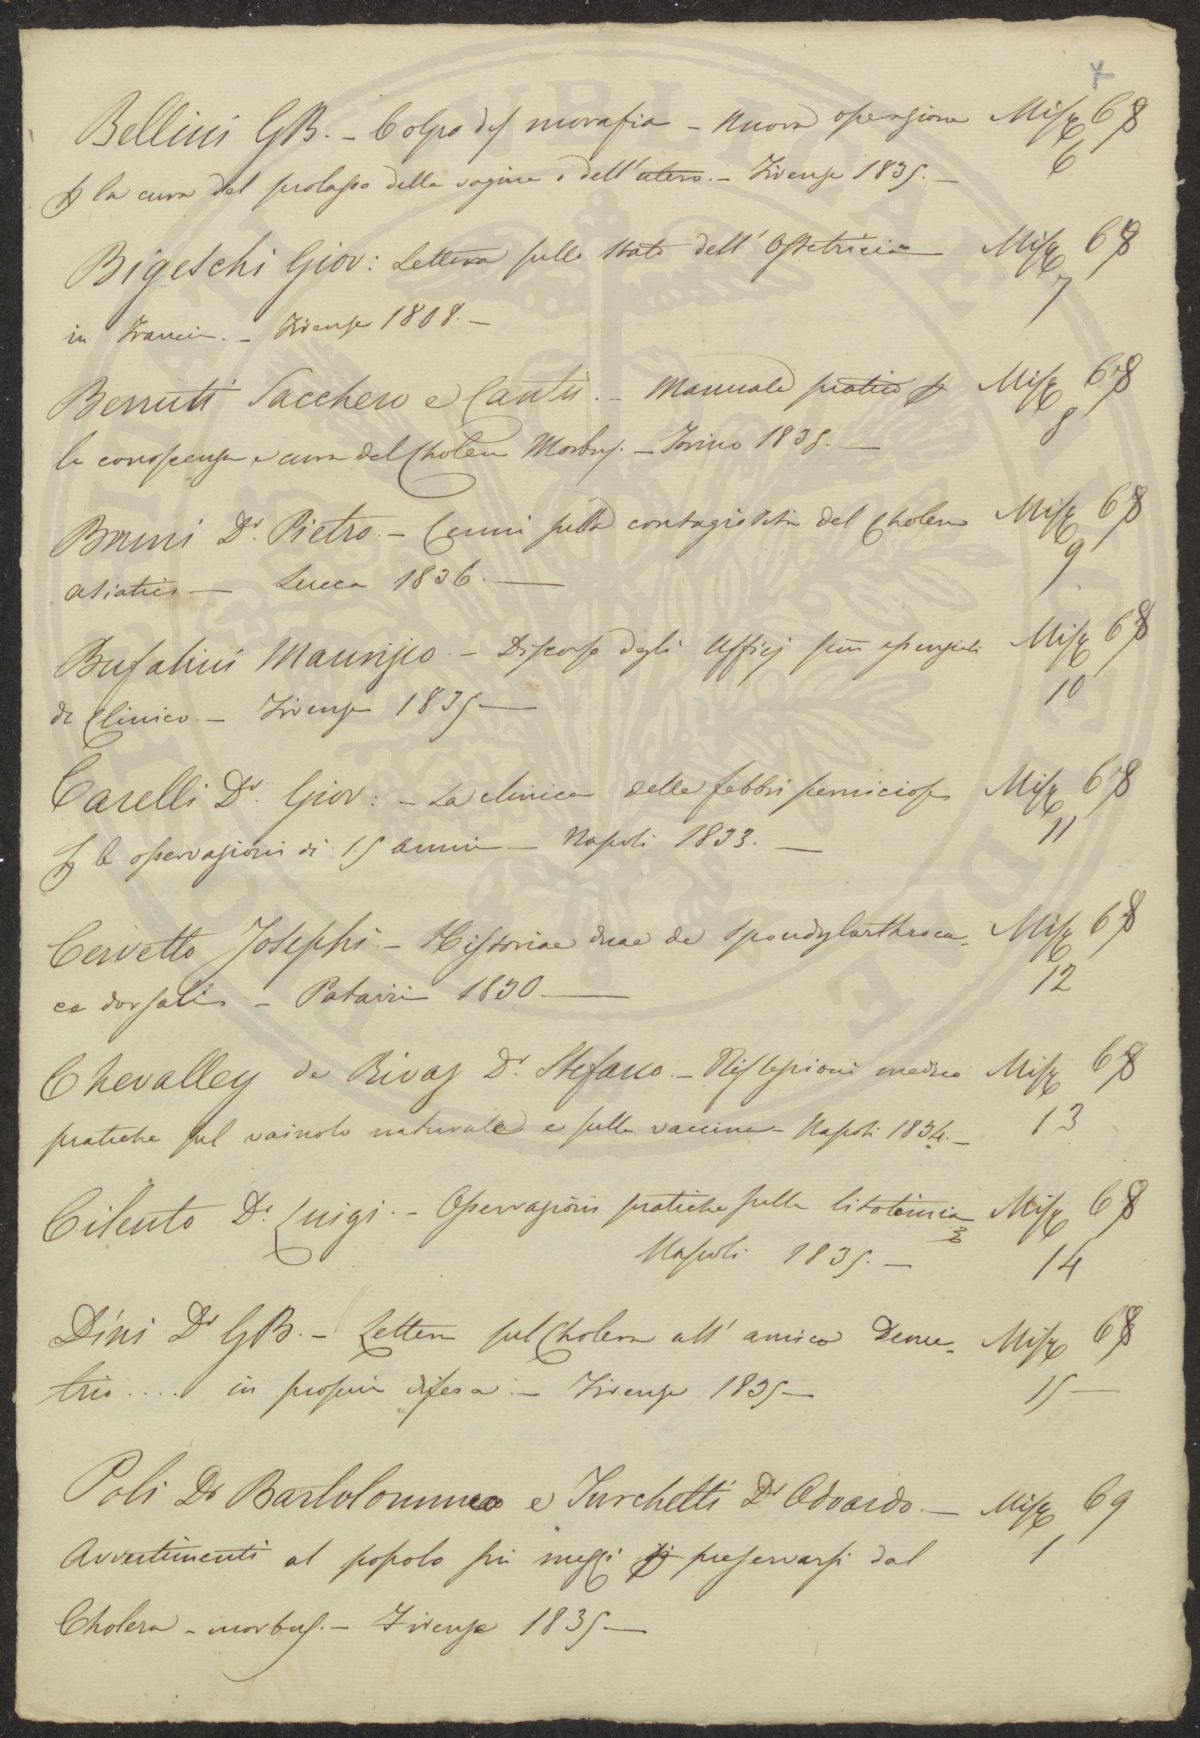 Bellini GB. – Colpo desmorafia – nuova operazione Misc 68
p la cura del prolasso della vagina o dell'utero. – Firenze 1835. – 6
Bigeschi Giov: Lettera sullo stato dell'Ostetricia Misc 68
in Francia. – Firenze 1808. – 7
Berruti Sacchero e Cantù. – Manuale pratico p Misc 68
la conoscenza e cura del Cholera Morbus. – Torino 1835. – 8
Bruni Dr. Pietro. – Cenni sulla contagiosità del Cholera Misc 68
asiatico – Lucca 1836. – 9
Bufalini Maurizio. – Discorso degli Uffici più essenziali Misc 68
di Clinico. – Firenze 1835 – 10
Carelli Dr. Giov: – La clinica delle febbri perniciose Misc 68
p le osservazioni di 15 anni – Napoli 1833. – 11
Cervetto Josephi – Historiae duae de spondylarthroca= Misc 68
ce dorsali – Patavii 1830 – 12
Chevalley de Rivaz Dr. Stefano. – Riflessioni medico Misc 68
pratiche sul vainolo naturale e sulla vaccina – Napoli 1834. – 13
Cilento Dr. Luigi. – Osservazioni pratiche sulla litotomia Misc 68
Napoli 1835. – 14
Dini Dr GB. – Lettera sul Cholera all'amico Deme= Misc 68
trio .... in propria difesa – Firenze 1835 – 15 –
Poli Dr Bartolommeo e Turchetti Dr Odoardo. – Misc 69
Avvertimenti al popolo sui mezzi di preservarsi dal 1
Cholera-morbus. – Firenze 1835 –